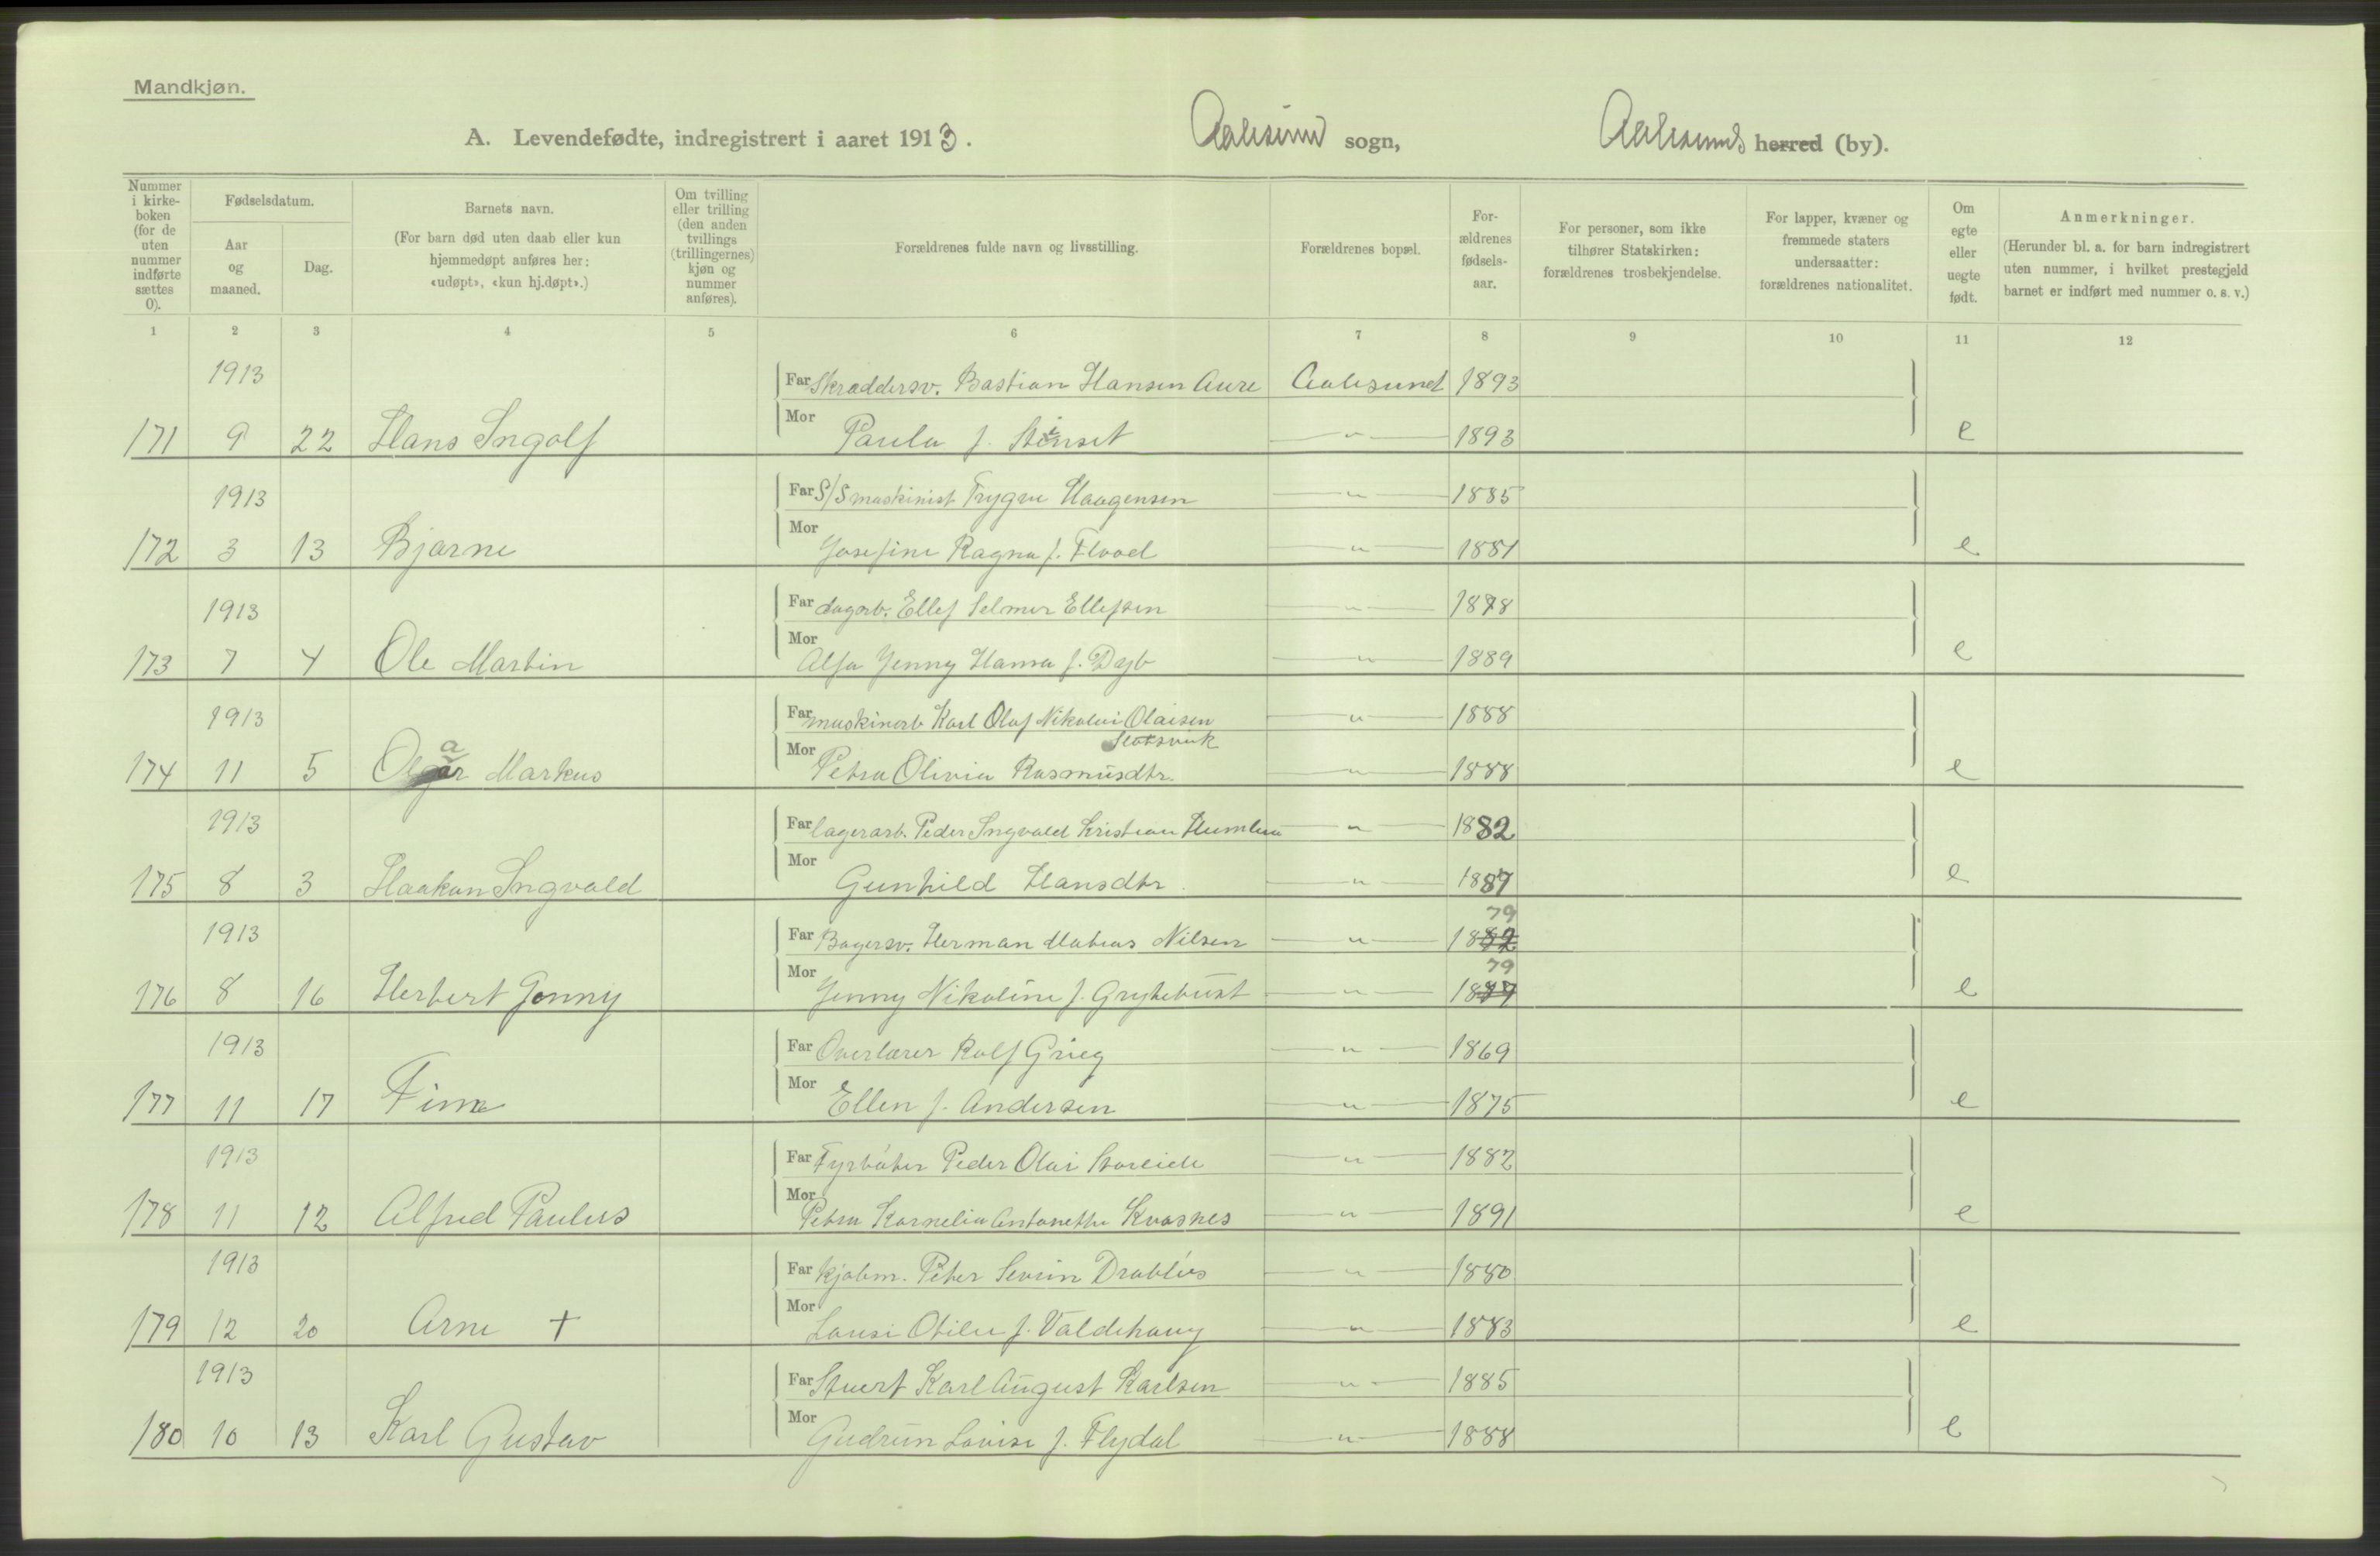 Mandkjøn.
A. Levendefødte, indregistrert i aaret 1913. Aalesund sogn, Aalesunds herred (by).
Nummer i kirkeboken (for de uten nummer indførte sættes 0).
Fødselsdatum.
Aar og maaned.
Dag.
Barnets navn.
(For barn død uten daab eller kun hjemmedøpt anføres her: «udøpt», «kun hj.døpt».)
Om tvilling eller trilling (den anden tvillings (trillingernes) kjøn og nummer anføres).
Forældrenes fulde navn og livsstilling.
Forældrenes bopæl.
Forældrenes fødselsaar.
For personer, som ikke tilhører Statskirken: forældrenes trosbekjendelse.
For lapper, kvæner og fremmede staters undersaatter: forældrenes nationalitet.
Om egte eller uegte født.
Anmerkninger.
(Herunder bl. a. for barn indregistrert uten nummer, i hvilket prestegjeld barnet er indført med nummer o. s. v.)
1 2 3 4 5 6 7 8 9 10 11 12
1913 Far Skræddersv. Bastian Hansen Aure Aalesund 1893
171 9 22 Hans Ingolf Mor Paula f. Stenset — " — 1893 e
1913 Far S/S maskinist Trygve Haagensen — " — 1885
172 3 13 Bjarne Mor Josefine Ragna f. Flood — " — 1881 e
1913 Far dagarb. Ellef Selmer Ellefsen — " — 1878
173 7 4 Ole Martin Mor Alfa Jenny Hanna f. Dyb — " — 1889 e
1913 Far maskinarb Karl Olaf Nikolai Olaisen — " — 1888
174 11 5 Markus Mor Petra Olivia Rasmusdtr. — " — 1888 e
1913 Far lagerarb. Peder Ingvald Kristian — " — 1882
175 8 3 Haakon Ingvald Mor Gunhild Hansdtr. — " — 1887 e
1913 Far Bagersv. Herman Mateus Nilsen — " — 1882 79
176 8 16 Herbert Jonny Mor Jenny Nikoline f. Grytebust — " — 1887 79 e
1913 Far Overlærer Rolf Grieg — " — 1869
177 11 17 Finn Mor Ellen f. Andersen — " — 1875 e
1913 Far Fyrbøter Peder Olai Storeide — " — 1882
178 11 12 Alfred Paulus Mor Petra Kornelia Antonette Kvasnes — " — 1891 e
1913 Far kjøbm. Peter Severin Drabløs — " — 1880
179 12 20 Arne + Mor Lovise Otilie f. Valdehaug — " — 1883 e
1913 Far Stuert Karl August Karlsen — " — 1885
180 10 13 Karl Gustav Mor Gudrun Lovise f. Flydal — " — 1888 e